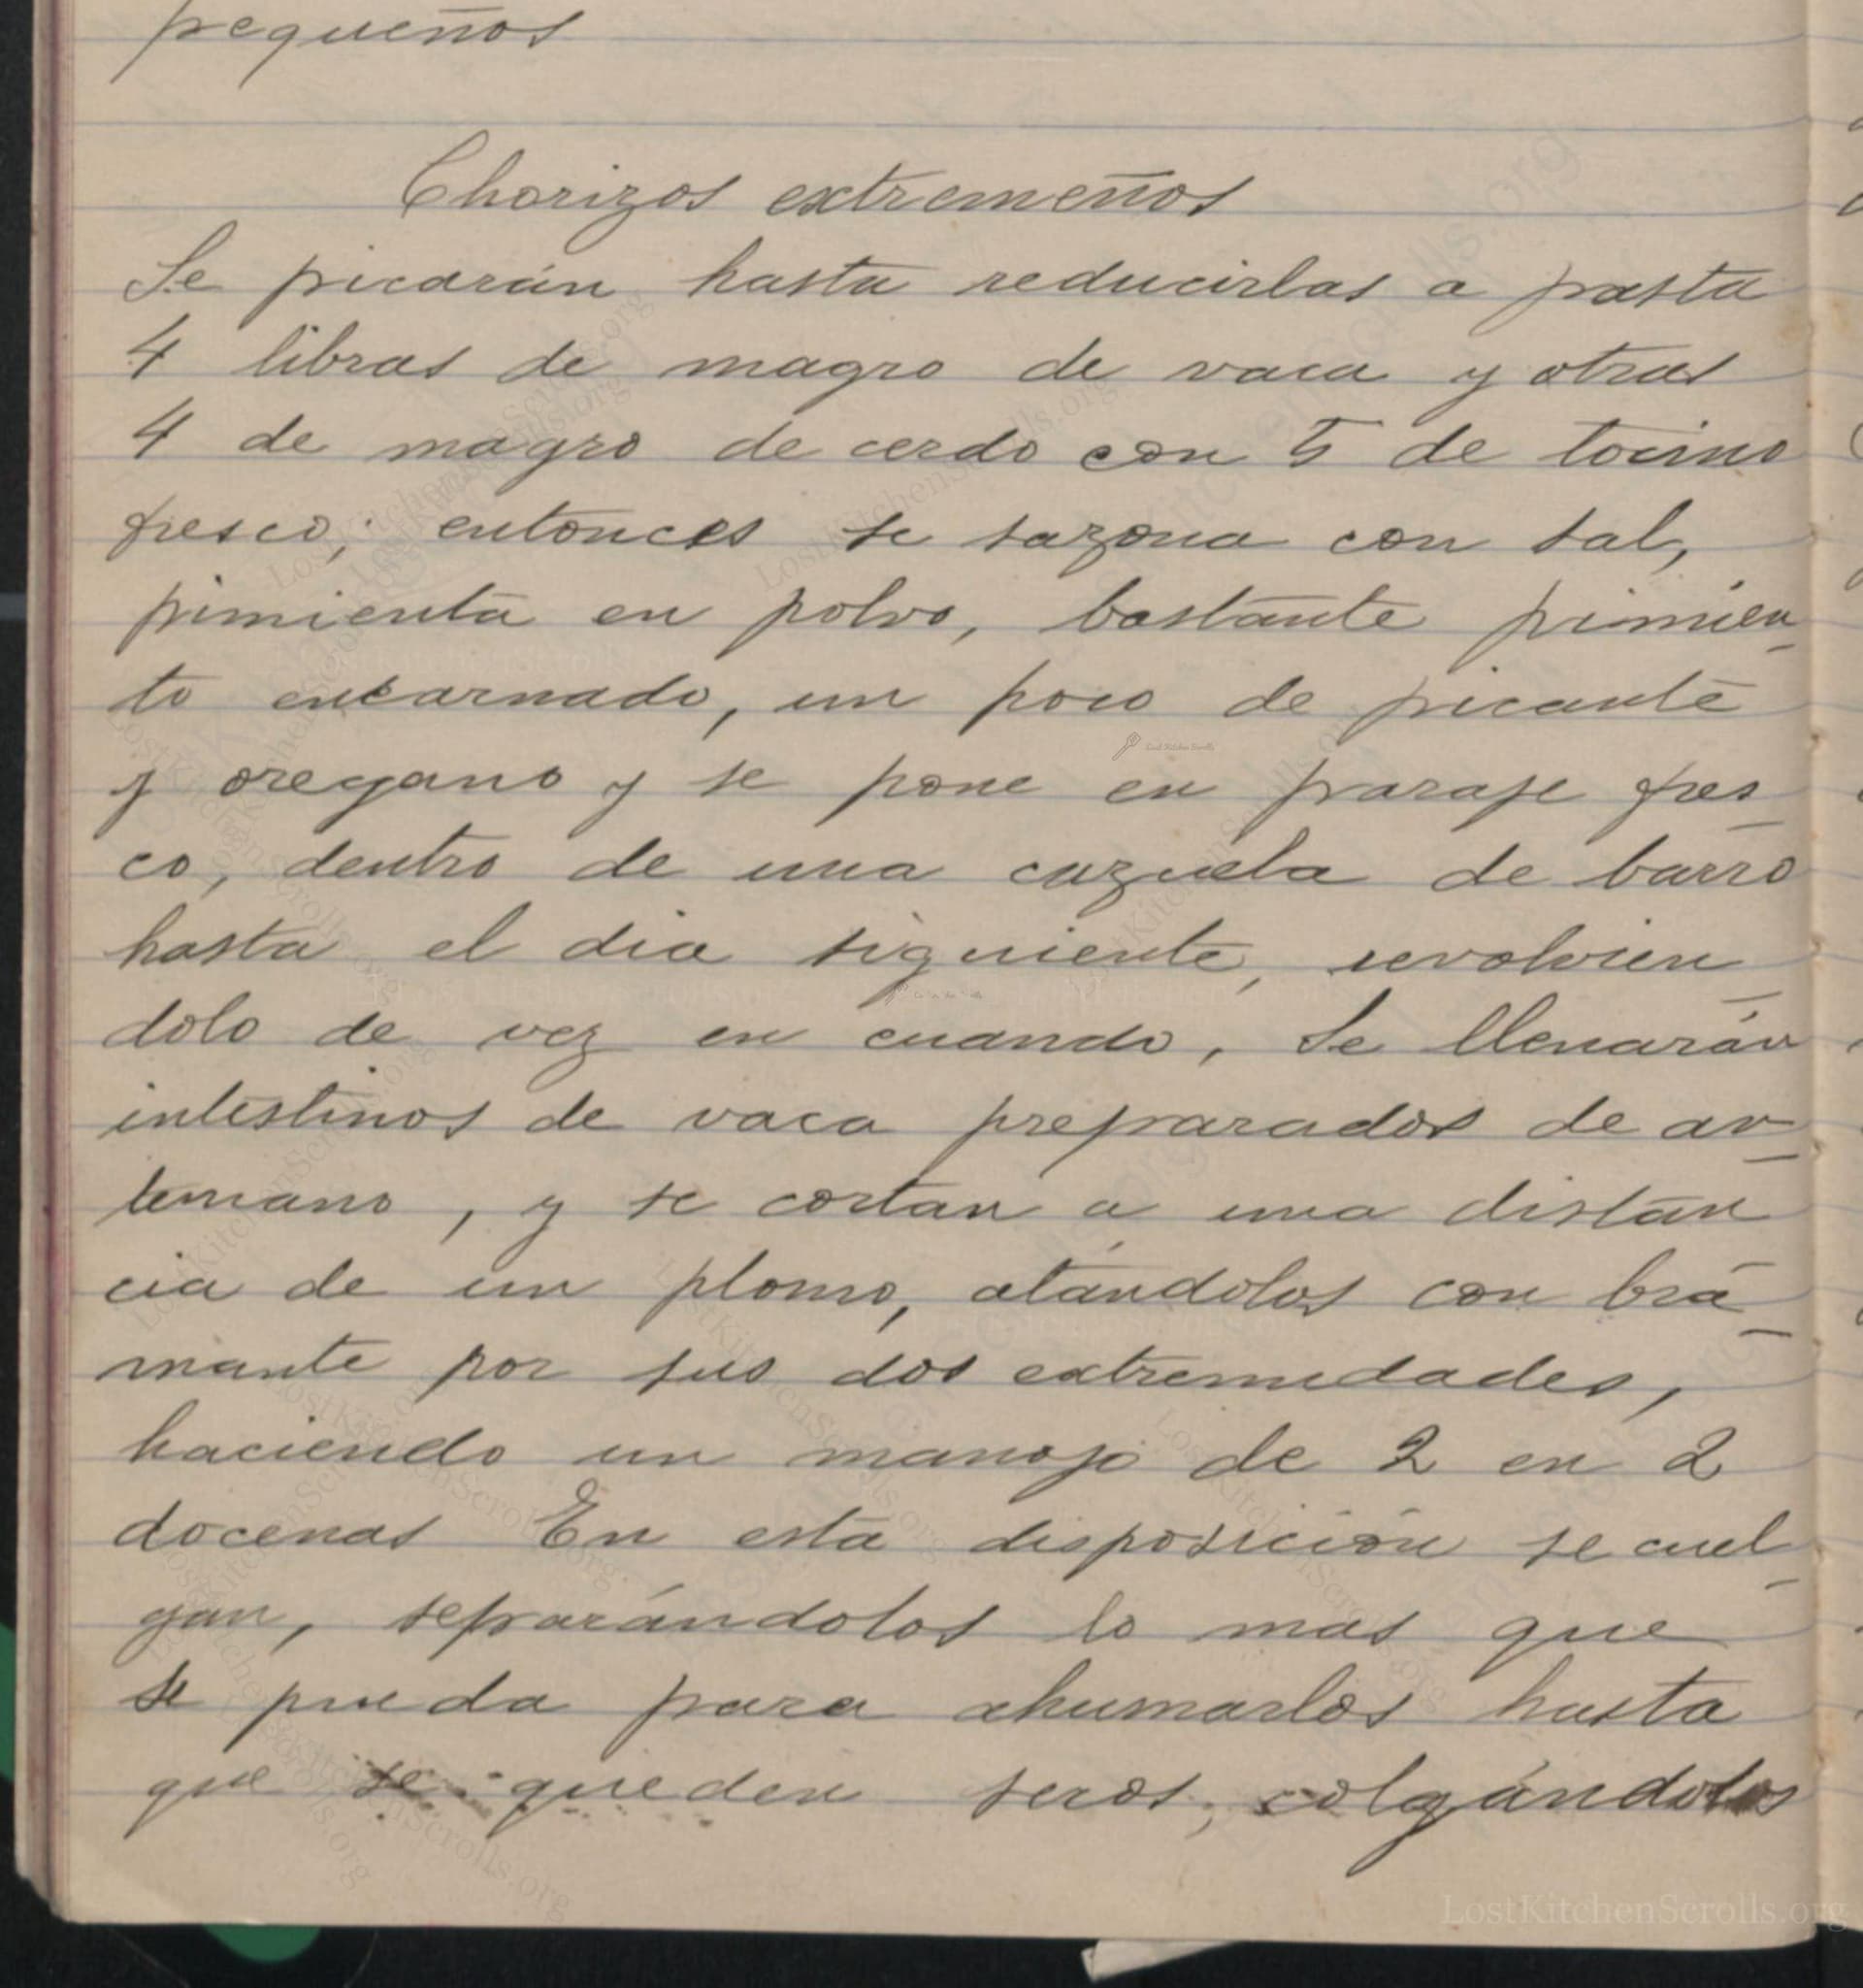 pequeños
Chorizos extremeños
Se picarán hasta reducirlas a pasta
4 libras de magro de vaca y otras
4 de magro de cerdo con 5 de tocino
fresco; entonces se sazona con sal,
pimienta en polvo, bastante pimien-
to encarnado, un poco de picante
y oregano y se pone en paraje fres-
co, dentro de una cazuela de barro
hasta el dia siguiente, revolvien-
dolo de vez en cuando, Se llenarán
intestinos de vaca preparados de an-
temano, y se cortan a una distan
cia de un plomo, atándolos con bra-
mante por sus dos extremidades,
haciendo un manojo de 2 en 2
docenas En esta disposición se cuel-
gan, separándolos lo mas que
se pueda para ahumarlos hasta
que se queden secos; colgándolos
LostKitchenScrolls.org